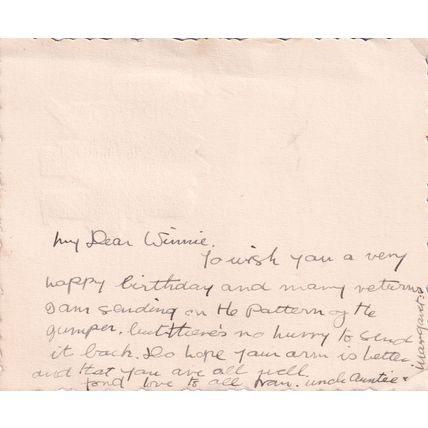 My Dear Winnie.
To wish you a very
happy birthday and many returns
I am sending on the pattern of the
gumper. but there's no hurry to send
it back. Do hope your arm is better
and that you are all well.
fond love to all from. uncle Auntie &
Margaret.